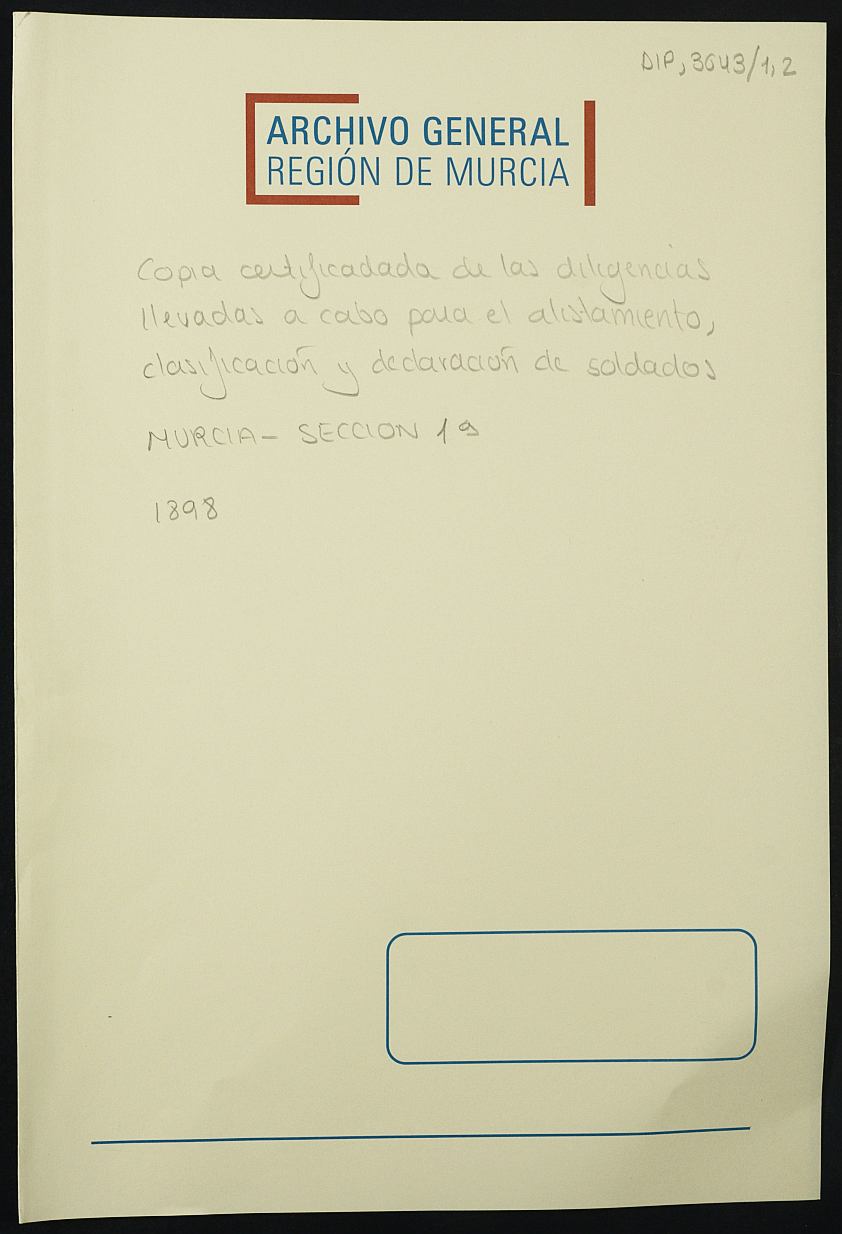 DIP, 3643/1, 2
ARCHIVO GENERAL
REGIÓN DE MURCIA
Copia certificadada de las diligencias
llevadas a cabo para el alistamiento,
clasificación y declaración de soldados
MURCIA - SECCION 1ª
1898